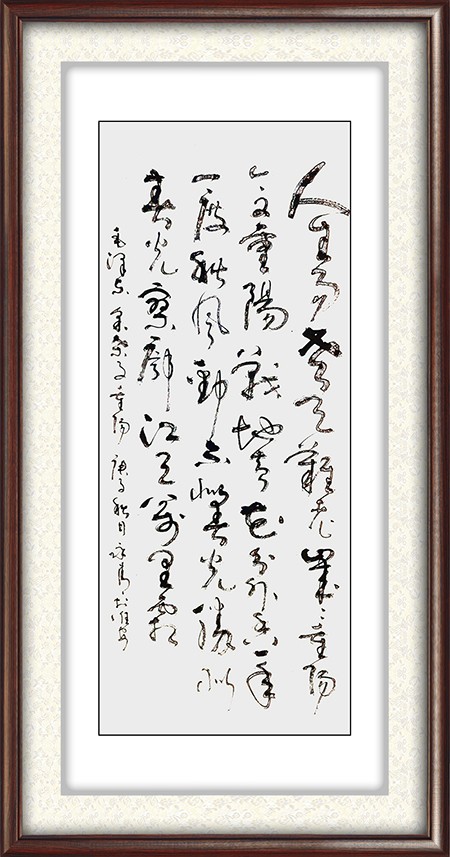 人生易老天難老歲々重陽
今又重陽戰地黃花分外香一年
一度秋風勁不似春光勝似
春光寥廓江天萬里霜
毛澤東采桑子重陽 庚子秋月